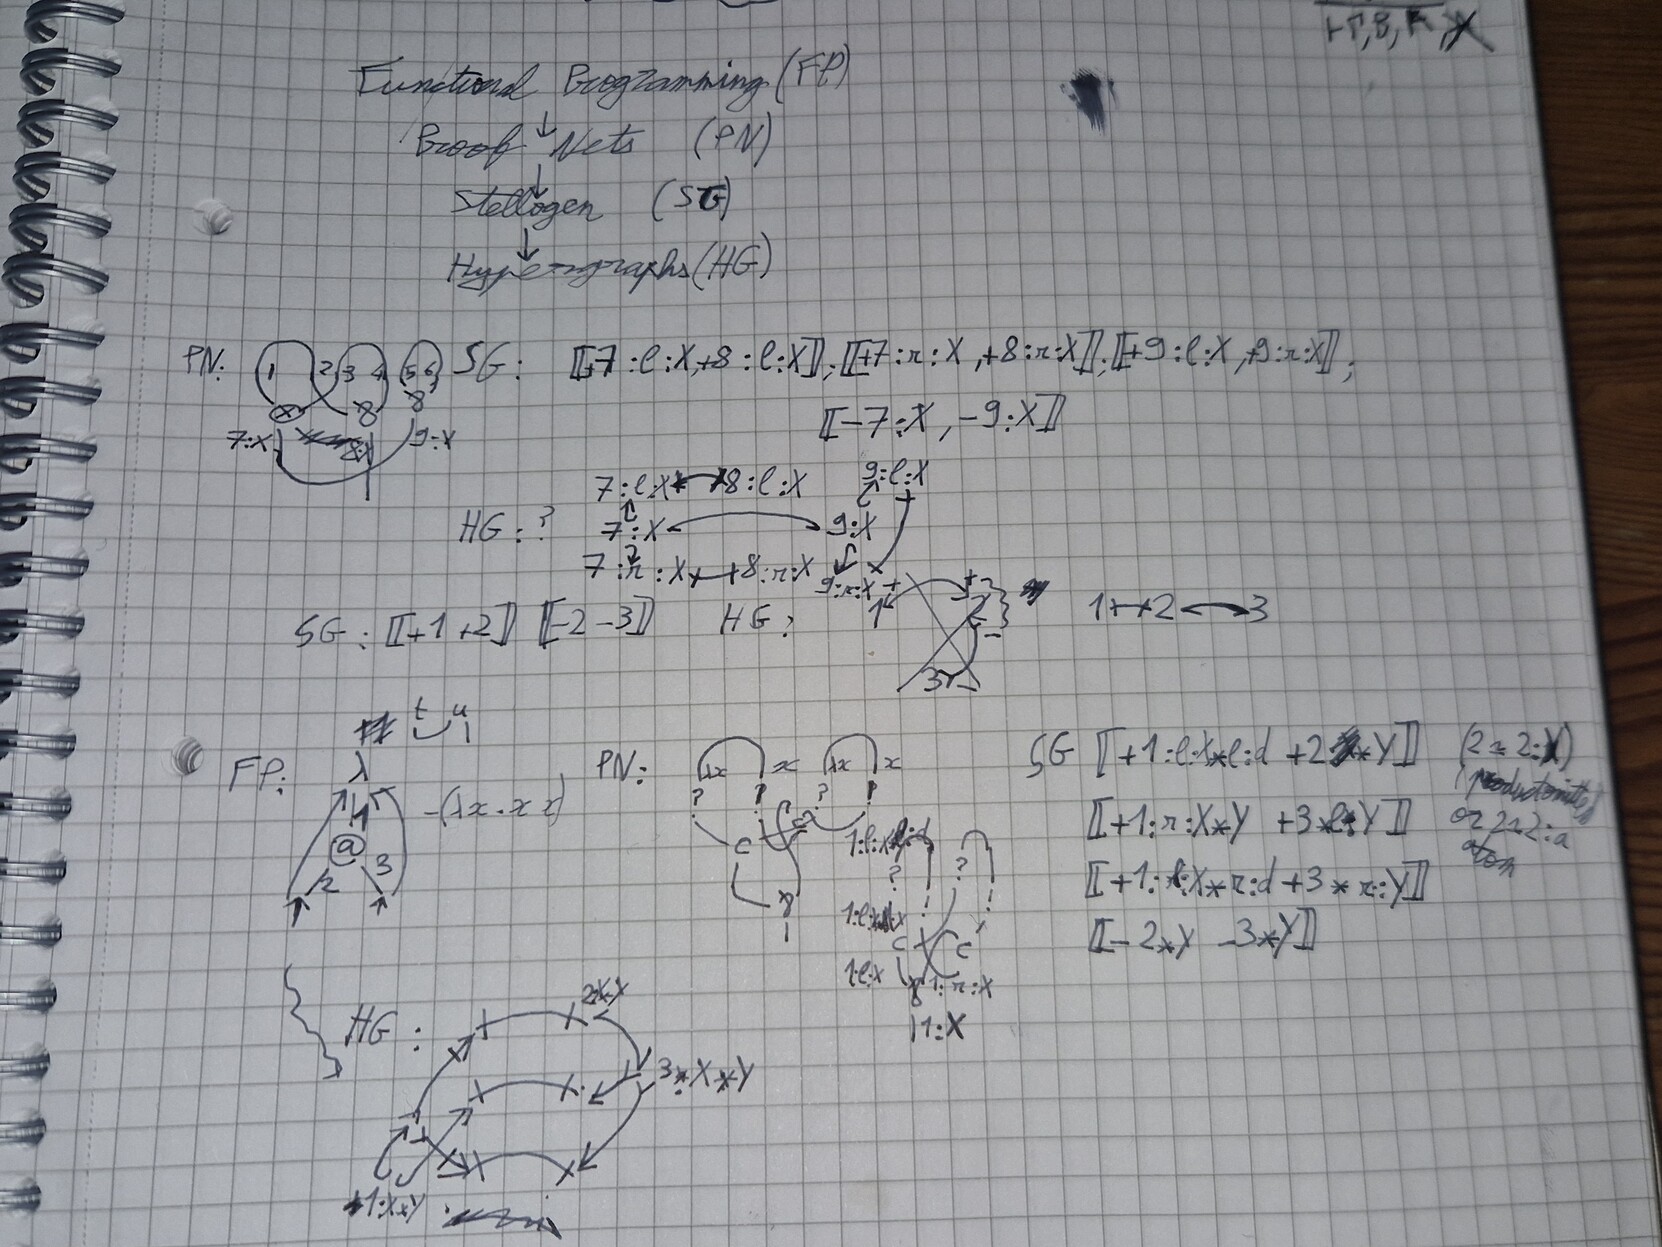 Functional Programming (FP)
↓
Proof Nets (PN)
↓
Stellogen (SG)
↓
Hypergraphs (HG)
PN: 1 2 3 4 5 6
⊗ ⅋ ⅋
7:X 8:X 9:X
SG: ⟦+7:l:X,+8:l:X⟧;⟦+7:r:X,+8:r:X⟧;⟦+9:l:X,+9:r:X⟧;
⟦-7:X,-9:X⟧
7:l:X 8:l:X 9:l:X
HG:? 7:X 9:X
7:r:X 8:r:X 9:r:X
SG: ⟦+1 +2⟧ ⟦-2 -3⟧ HG: 1 2 3 1 2 3
t u
FP: λ 1 @ 2 3 -(λx.x x)
PN: ax x ax x
? ? ? !
c
⅋
? ! ? !
c c
1:l:X 1:r:X
1:X
SG ⟦+1:l:X*l:d +2*Y⟧ (2=2:X)
⟦+1:r:X*Y +3*l:Y⟧
⟦+1:l:X*r:d+3*r:Y⟧ atom
⟦-2*Y -3*Y⟧
HG: 2:X*Y
3*X*Y
+1:X*Y